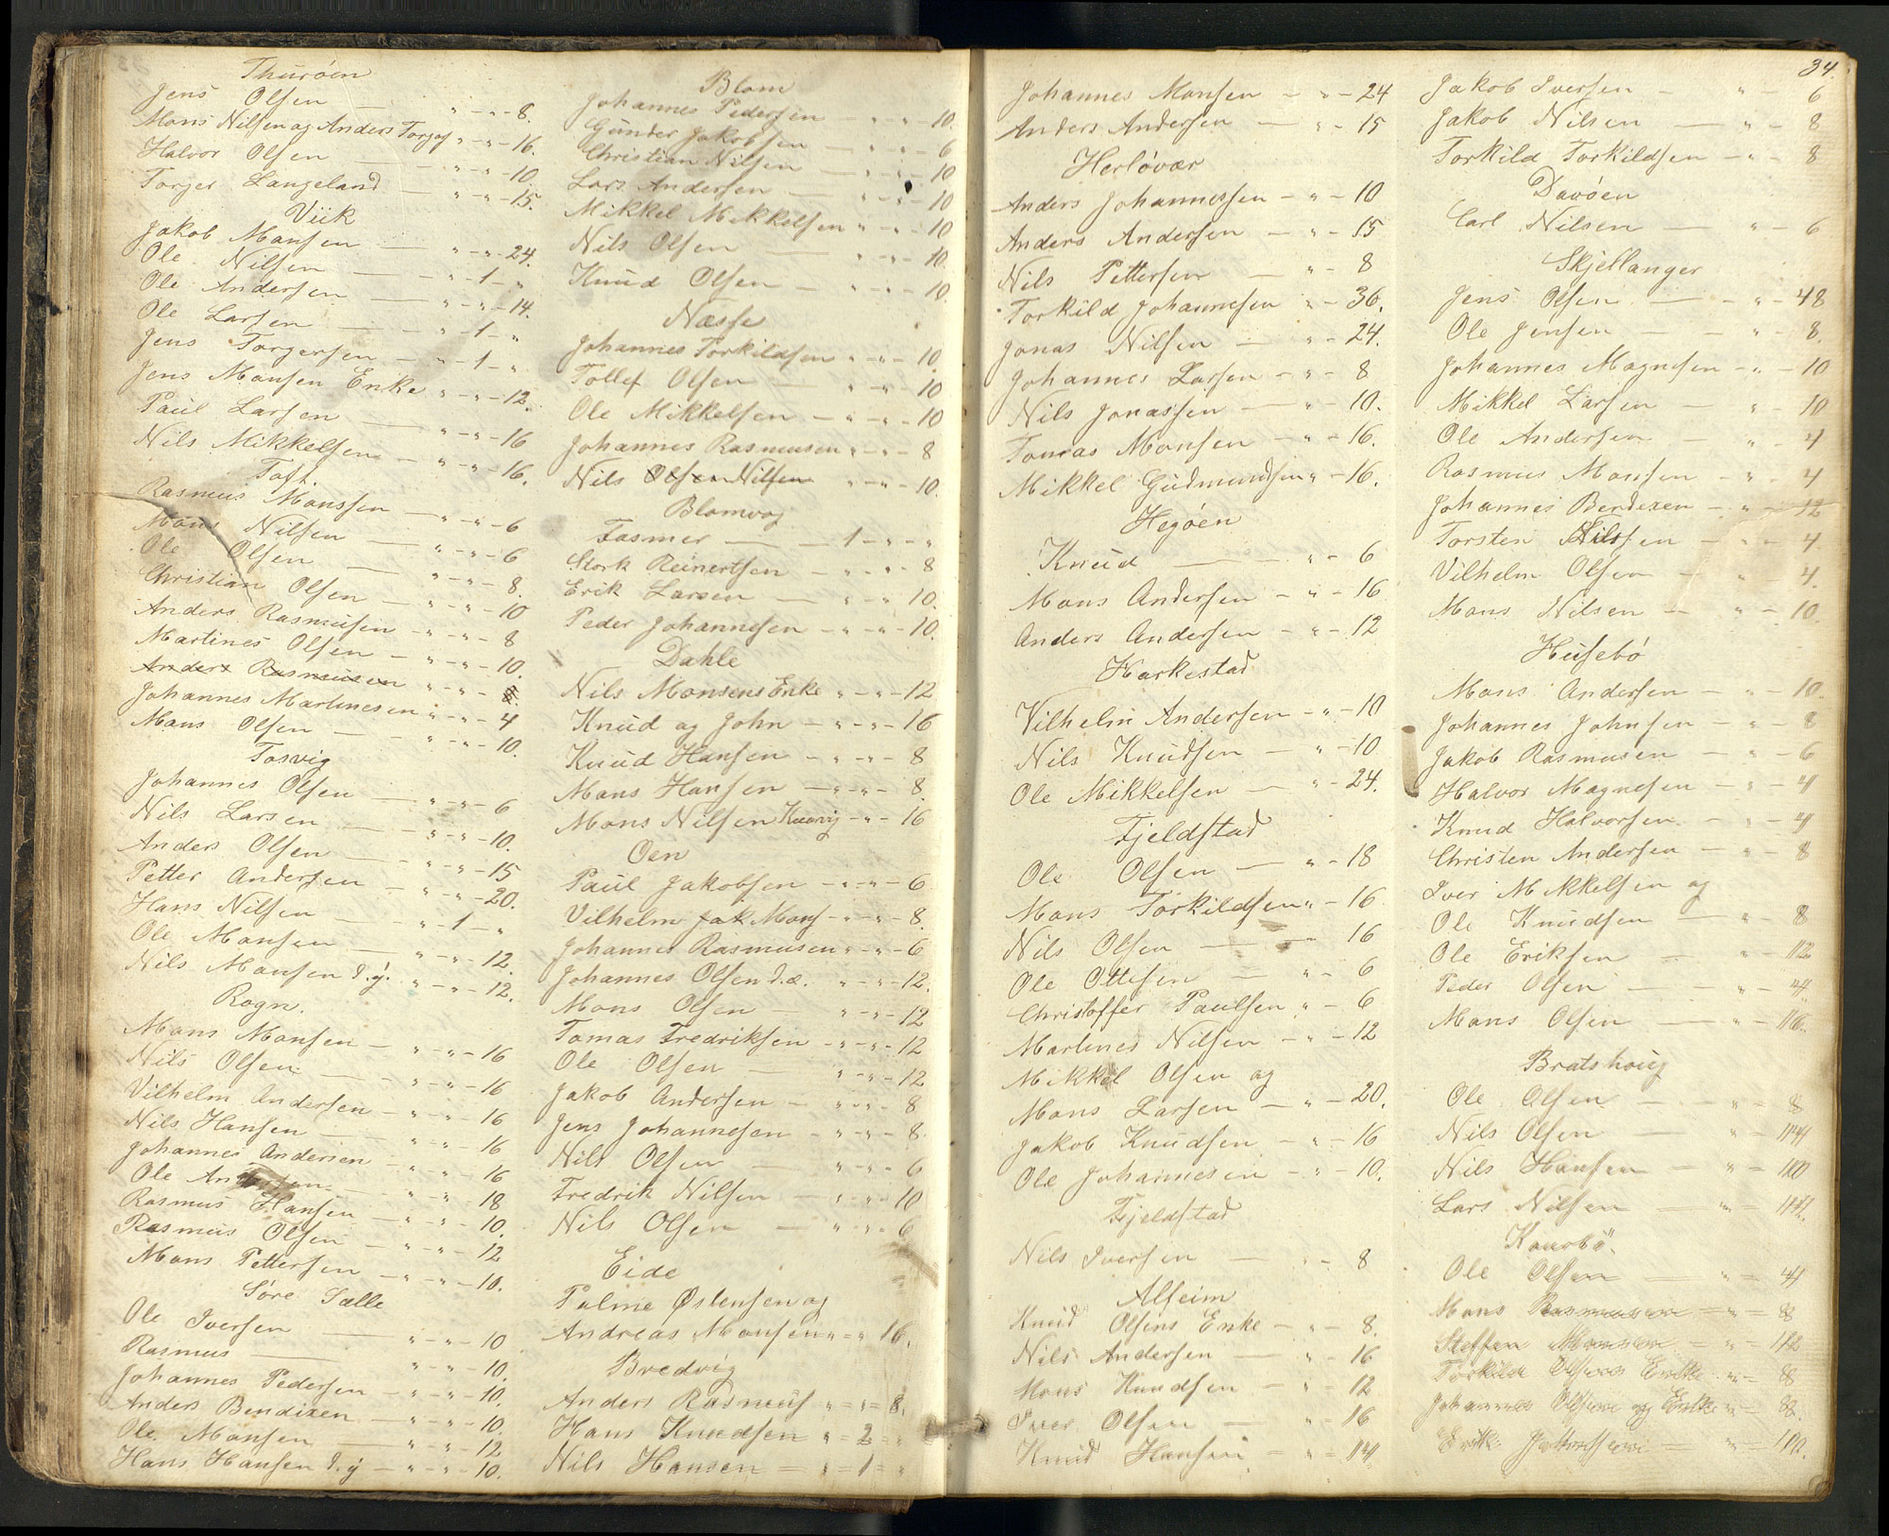 Thuröen
Jens Olsen — " - " - 8.
Mons Nilsen og Anders Torgog " - " - 16.
Halvor Olsen — " - " - 10
Torger Langeland — " - " - 15.
Viik
Jakob Monsen — " - " - 24.
Ole Nilsen — " - 1 - "
Ole Andersen — " - " - 14.
Ole Larsen — " - 1 - "
Jens Torgersen — " - 1 - "
Jens Monsen Enke " - " - 12.
Paul Larsen — " - " - 16
Nils Mikkelsen — " - " - 16.
Toft.
Rasmus Monssen — " - " - 6
Mons Nilsen — " - " - 6
Ole Olsen — " - " - 8.
Christian Olsen — " - " - 10
Anders Rasmusen — " - " - 8
Martines Olsen — " - " - 10.
Anders Rasmusen " - " - 8.
Johannes Martinesen " - " - 4
Mons Olsen — " - " - 10.
Tosvig
Johannes Olsen — " - " - 6
Nils Larsen — " - " - 10.
Anders Olsen — " - " - 15
Petter Andersen — " - " - 20.
Hans Nilsen — " - 1 - "
Ole Monsen — " - " - 12.
Nils Monsen d. y. " - " - 12.
Rogn.
Mons Monsen — " - " - 16
Nils Olsen — " - " - 16
Vilhelm Andersen — " - " - 16
Nils Hansen — " - " - 16
Johannes Andersen — " - " - 16
Ole — " - " - 18
Rasmus Hansen — " - " - 10.
Rasmus Olsen — " - " - 12
Mons Pettersen — " - " - 10.
Söre Sælle
Ole Iversen " - " - 10
Rasmus — " - " - 10.
Johannes Pedersen — " - " - 10.
Anders Bendixen — " - " - 10.
Ole Monsen — " - " - 12.
Hans Hansen d. y — " - " - 10.
Blom
Johannes Pedersen " - " - 10.
Gunder Jakobsen — " - " - 6
Christian Nilsen — " - " - 10
Lars Andersen — " - " - 10
Mikkel Mikkelsen " - " - 10
Nils Olsen — " - " - 10.
Knud Olsen — " - " - 10.
Næsse
Johannes Torkildsen " - " - 10
Tollef Olsen — " - " - 10
Ole Mikkelsen — " - " - 10
Johannes Rasmusen " - " - 8
Nils Olsen Nilsen " - " - 10.
Blomvog
Fasmer — 1 - " - "
Stork Reinertsen — " - " - 8
Erik Larsen — " - " - 10.
Peder Johannesen — " - " - 10.
Dahle
Nils Monsens Enke " - " - 12
Knud og John — " - " - 16
Knud Hansen — " - " - 8
Mons Hansen — " - " - 8.
Mons Nilsen — " - 16
Oen
Paul Jakobsen — " - " - 6
Vilhelm Jak Mons — " - " - 8.
Johannes Rasmusen " - " - 6
Johannes Olsen d. æ. " - " - 12.
Mons Olsen — " - " - 12
Tomas Fredriksen — " - " - 12
Ole Olsen — " - " - 12
Jakob Andersen — " - " - 8
Jens Johannesen — " - " - 8.
Nils Olsen — " - " - 6
Fredrik Nilsen — " - " - 10
Nils Olsen — " - " - 6
Eide
Palme Østensen og
Andreas Monsen " = " = 16.
Bredvig
Anders Rasmus " = " = 8.
Hans Knudsen " = 2 = "
Nils Hansen = " = 1 = "
Johannes Monsen — " - 24
Anders Andersen — " - 15
Herlövær
Anders Johannessen — " - 10
Anders Andersen — " - 15
Nils Pettersen — " - 8
Torkild Johannesen " - 36.
Jonas Nilsen — " - 24.
Johannes Larsen — " - 8
Nils Jonassen — " - 10.
Tomas Monsen — " - 16.
Mikkel Gudmundsen " - 16.
Hegöen
Knud — " - 6
Mons Andersen — " - 16
Anders Andersen — " - 12
Harkestad
Vilhelm Andersen — " - 10
Nils Knudsen — " - 10
Ole Mikkelsen — " - 24.
Fjeldstad
Ole Olsen — " - 18
Mons Torkildsen " - 16
Nils Olsen — 16
Ole Ottesen — " - 6
Christoffer Paulsen " - 6
Martines Nilsen — " - 12
Mikkel Olsen og
Mons Larsen — " - 20.
Jakob Knudsen — " - 16
Ole Johannesen — " - 10.
Fjeldstad
Nils Iversen — " - 8
Alseim
Knud Olsens Enke — " - 8.
Nils Andersen — " - 16
Mons Knudsen — " - 12
Iver Olsen — " - 16
Knud Hansen — " = 14
34.
Jakob Iversen — " - 6
Jakob Nilsen — " - 8
Torkild Torkildsen — " - 8
Davöen
Carl Nilsen — " - 6
Skjellanger
Jens Olsen — " - 48
Ole Jensen — " - 8.
Johannes Magnesen — " - 10
Mikkel Larsen — " - 10
Ole Andersen — " - 4
Rasmus Monsen — " - 4
Johannes Bendixen — " - 12
Torsten Nilssen — " - 4
Vilhelm Olsen — " - 4.
Mons Nilsen — " - 10.
Husebö
Mons Andersen — " - 10.
Johannes Johnsen — " - 8
Jakob Rasmusen — " - 6
Halvor Magnesen — " - 4
Knud Halvorsen — " - 4
Christen Andersen — " - 8
Iver Mikkelsen og
Ole Knudsen — " - 8
Ole Eriksen — " - 12
Peder Olsen — " - 4.
Mons Olsen — " - 16.
Bratshoug
Ole Olsen — " = 8
Nils Olsen — " = 14
Nils Hansen — " = 10
Lars Nilsen — " = 14.
Kaarbö.
Ole Olsen — " = 4
Mons Rasmusen = " = 8
Steffen Monsen = " = 12
Torkild Olsens Enke " = 8
Johannes Olsen og Enke " = 8.
Erik — " = 10.